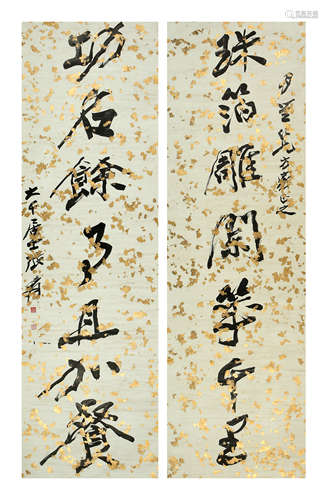 月笙兄方家正之
珠箔雕闌幾千里
功名餘事且加餐
大千居士張爰